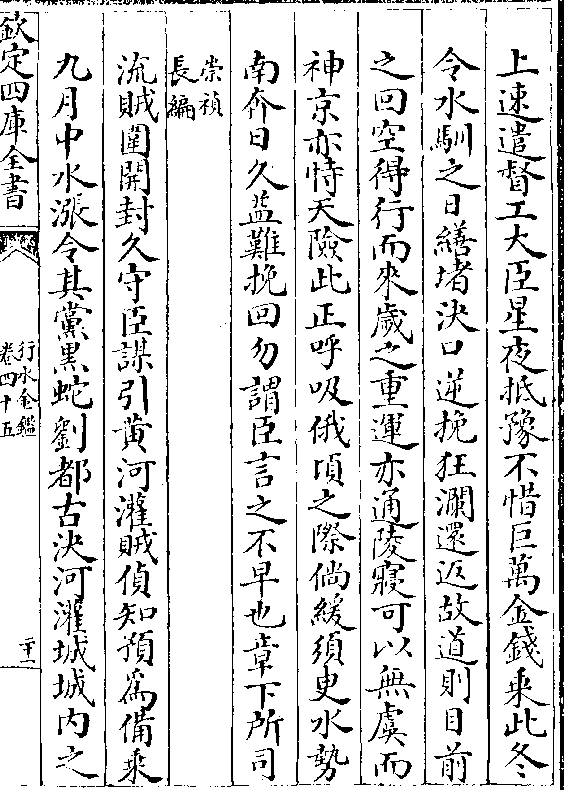 上速遣督工大臣星夜抵豫不惜巨萬金錢乘此冬
令水馴之日繕堵決口逆挽狂瀾還返故道則目前
之回空得行而來歲之重運亦通陵寢可以無虞而
神京亦恃天險此正呼吸俄頃之際倘緩須臾水勢
南奔日久益難挽回勿謂臣言之不早也章下所司
崇禎
長編
流賊圍開封久守臣謀引黄河灌賊偵知預為備乘
九月中水漲令其黨黒蛇劉都古決河灌城城内之
欽定四庫全書
行水金鑑
卷四十五
二十一